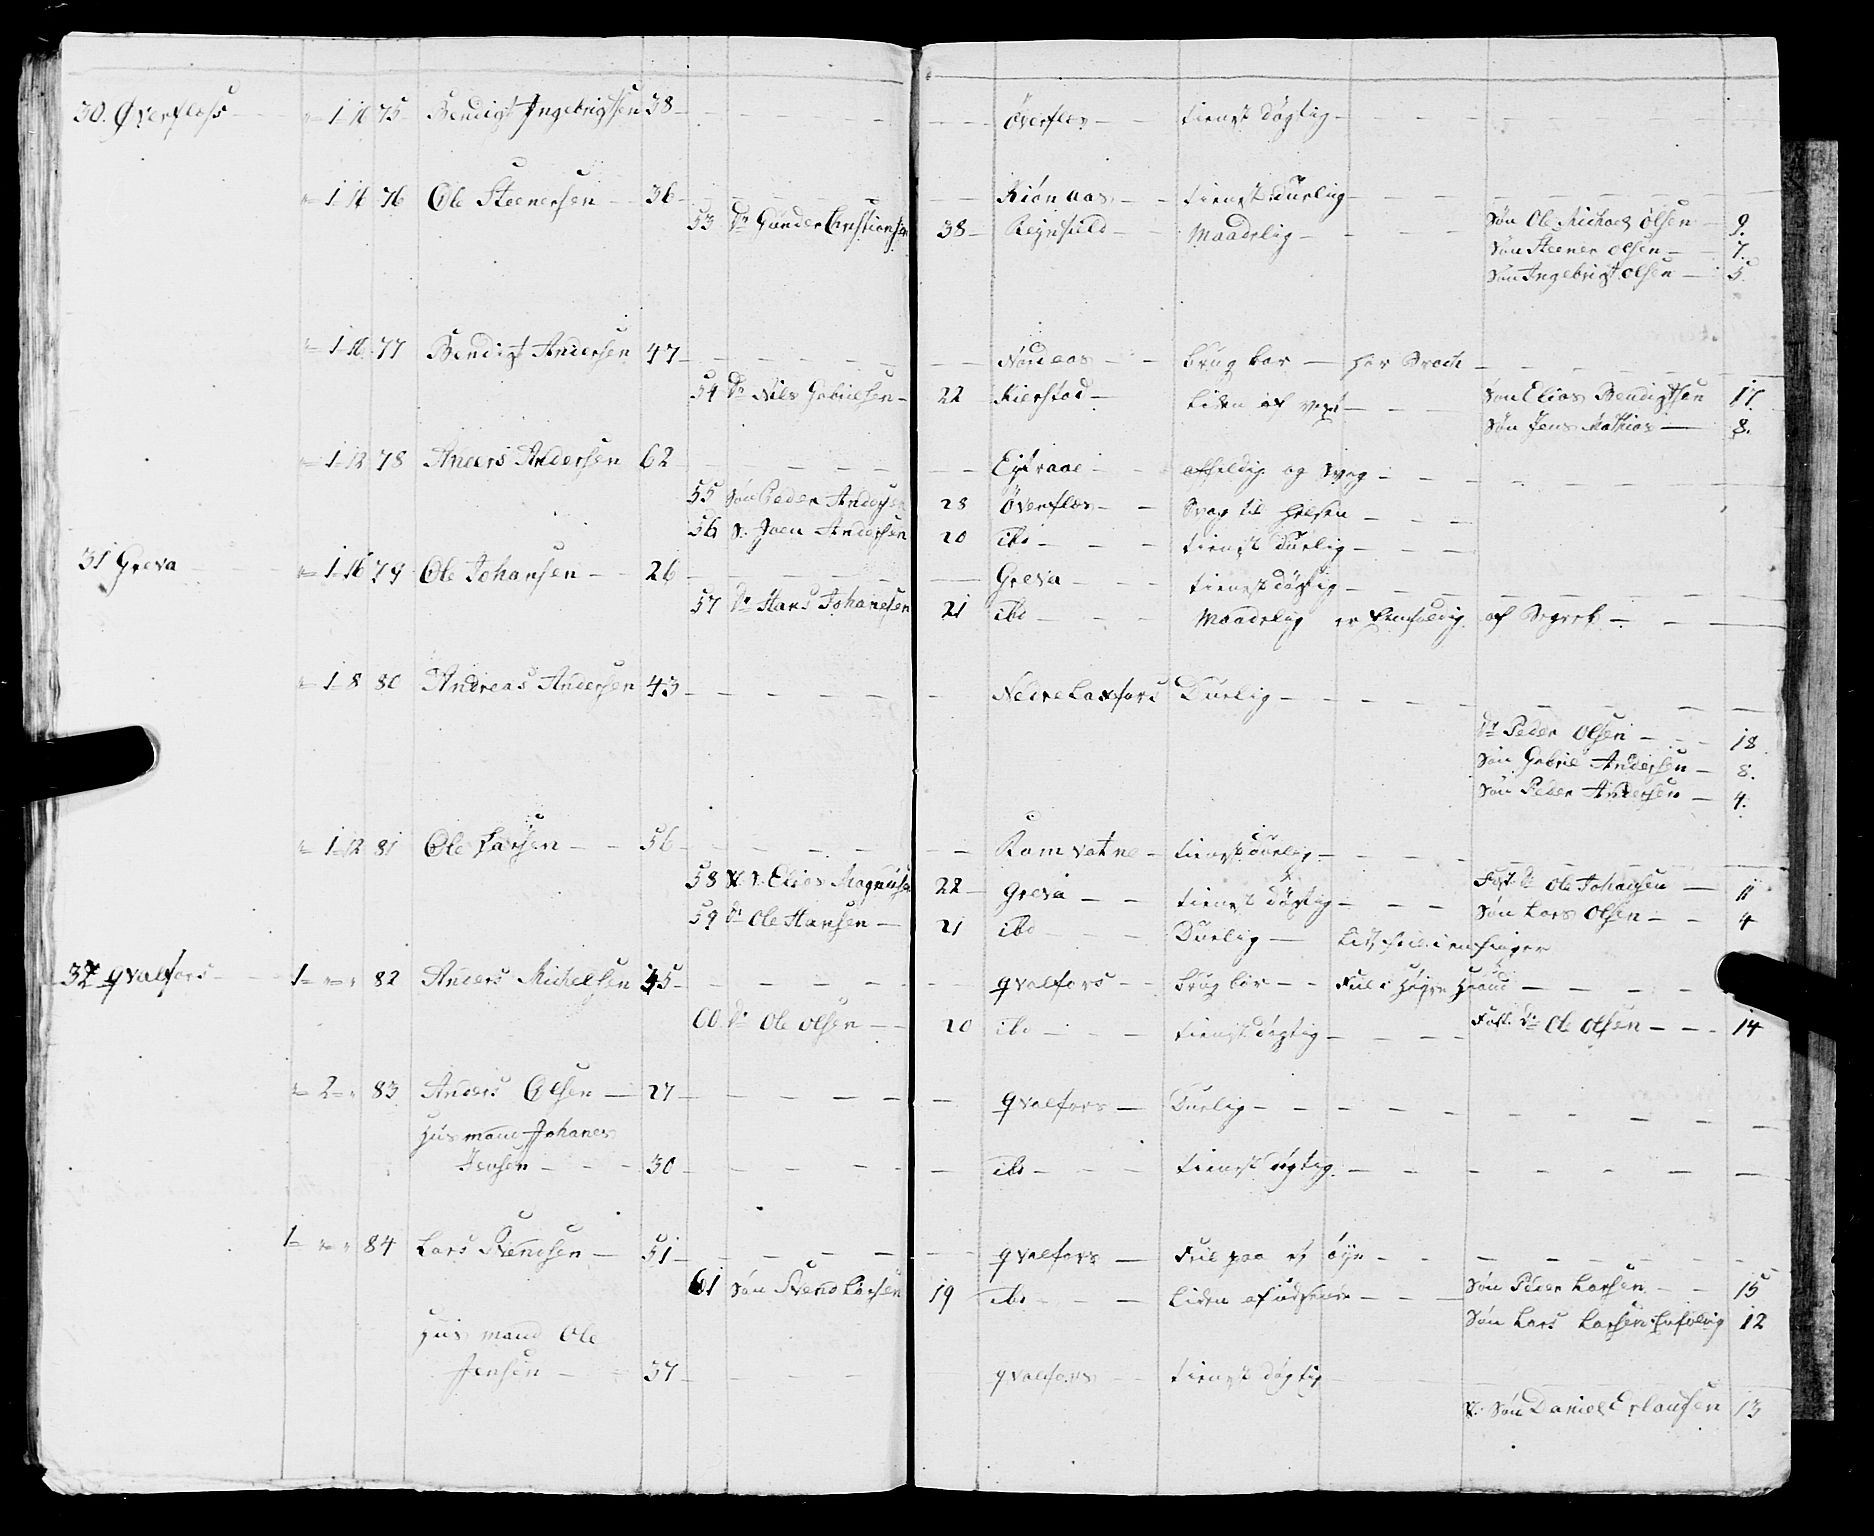 30. Øverfloss — „ 1 16 75 Bendigt Ingebrigtsen 38 — Överflos — tienst døgtig —
„ 1 16 76 Ole Steenersen — 36 — Kiønaas — tienst Durlig —
53 Dr Gunder Christiansen 38 — Reynfield — Maadelig — Søn Ole Michael Olsen — 9.
Søn Steener Olsen — 7.
Søn Ingebrigt Olsen — 5.
„ 1 16 77 Bendigt Andersen 47 — Nordaas — brugbar — har Brock —
54 Dr Nils Gabrielsen — 22 Kierstad — liden af vext — Søn Elias Bendigtsen 17
Søn Jens Mathias — 8.
„ 1 12 78 Anders Andersen 62 — Eytraae — afheldig og Svag —
55 Søn Peder Andersen 28 Överflos — Svag til Helsen —
56 S. Joen Andersen 20 ibd — tienst Durlig —
31 Greva — „ 1 16 79 Ole Johansen — 26 — Greva — tienst døgtig —
57 Dr Hans Johanesen 21 ibd — Maadelig er Eenfoldig af Begreb —
„ 1 8 80 Andreas Andersen 43 — Nedre Laxfors Durlig —
Dr Peder Olsen — 18
Søn Gabriel Andersen — 8.
Søn Peder Andersen — 4.
„ 1 12 81 Ole Larsen — 56 — Ramvatne — tienst durlig —
58 Elias Magnusen 22 — Greva — tienst døgtig — Fost. Dr Ole Johansen — 11
59 Dr Ole Hansen — 21 ibd — Durlig — Lidt feil i en finger Søn Lars Olsen — 4
32 qvalfors — 1 „ „ 82 Anders Michelsen 45 — qvalfors — brugbar — Feil i Høyre Haand —
60 Dr Ole Olsen — 20 ibd — tienst døgtig — Fost. Dr Ole Olsen — 14
„ 2 „ 83 Anders Olsen — 27 — qvalfors — Durlig —
Husmand Johanes
Jensen — 30 — ibd — tienst døgtig —
1 „ „ 84 Lars Svendsen — 51 — qvalfors — Feil paa et öye —
61 Søn Svend Larsen 19 ibd — Liden af udseende — Søn Peder Larsen — 15
Søn Lars Larsen Enfoldig 12
Husmand Ole
Jensen — 37 — qvalfors — tienst døgtig —
Søn Daniel Erlandsen 13